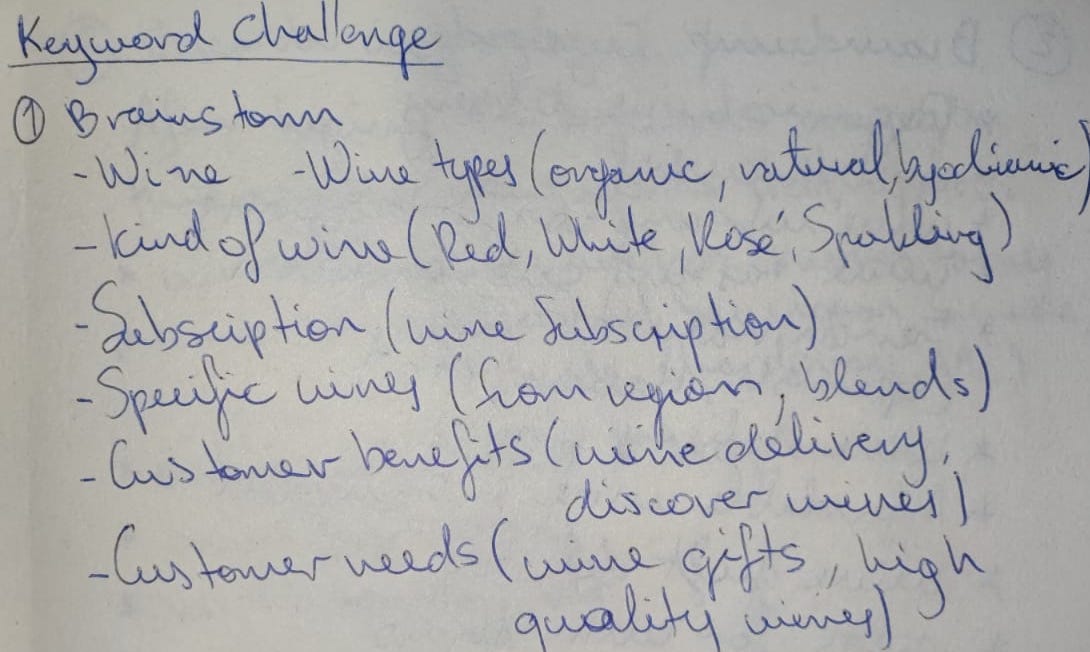 Keyword Challenge
① Brainstorm
- Wine - Wine types (organic, natural, byodinamic)
- Kind of wine (Red, White, Rosé, Sparkling)
- Subscription (wine Subscription)
- Specific wines (from region, blends)
- Customer benefits (wine delivery,
discover wines)
- Customer needs (wine gifts, high
quality wines)